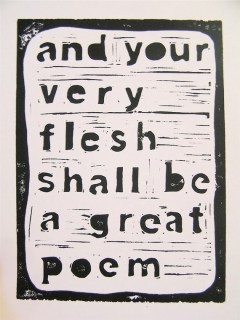 and your
very
flesh
shall be
a great
poem